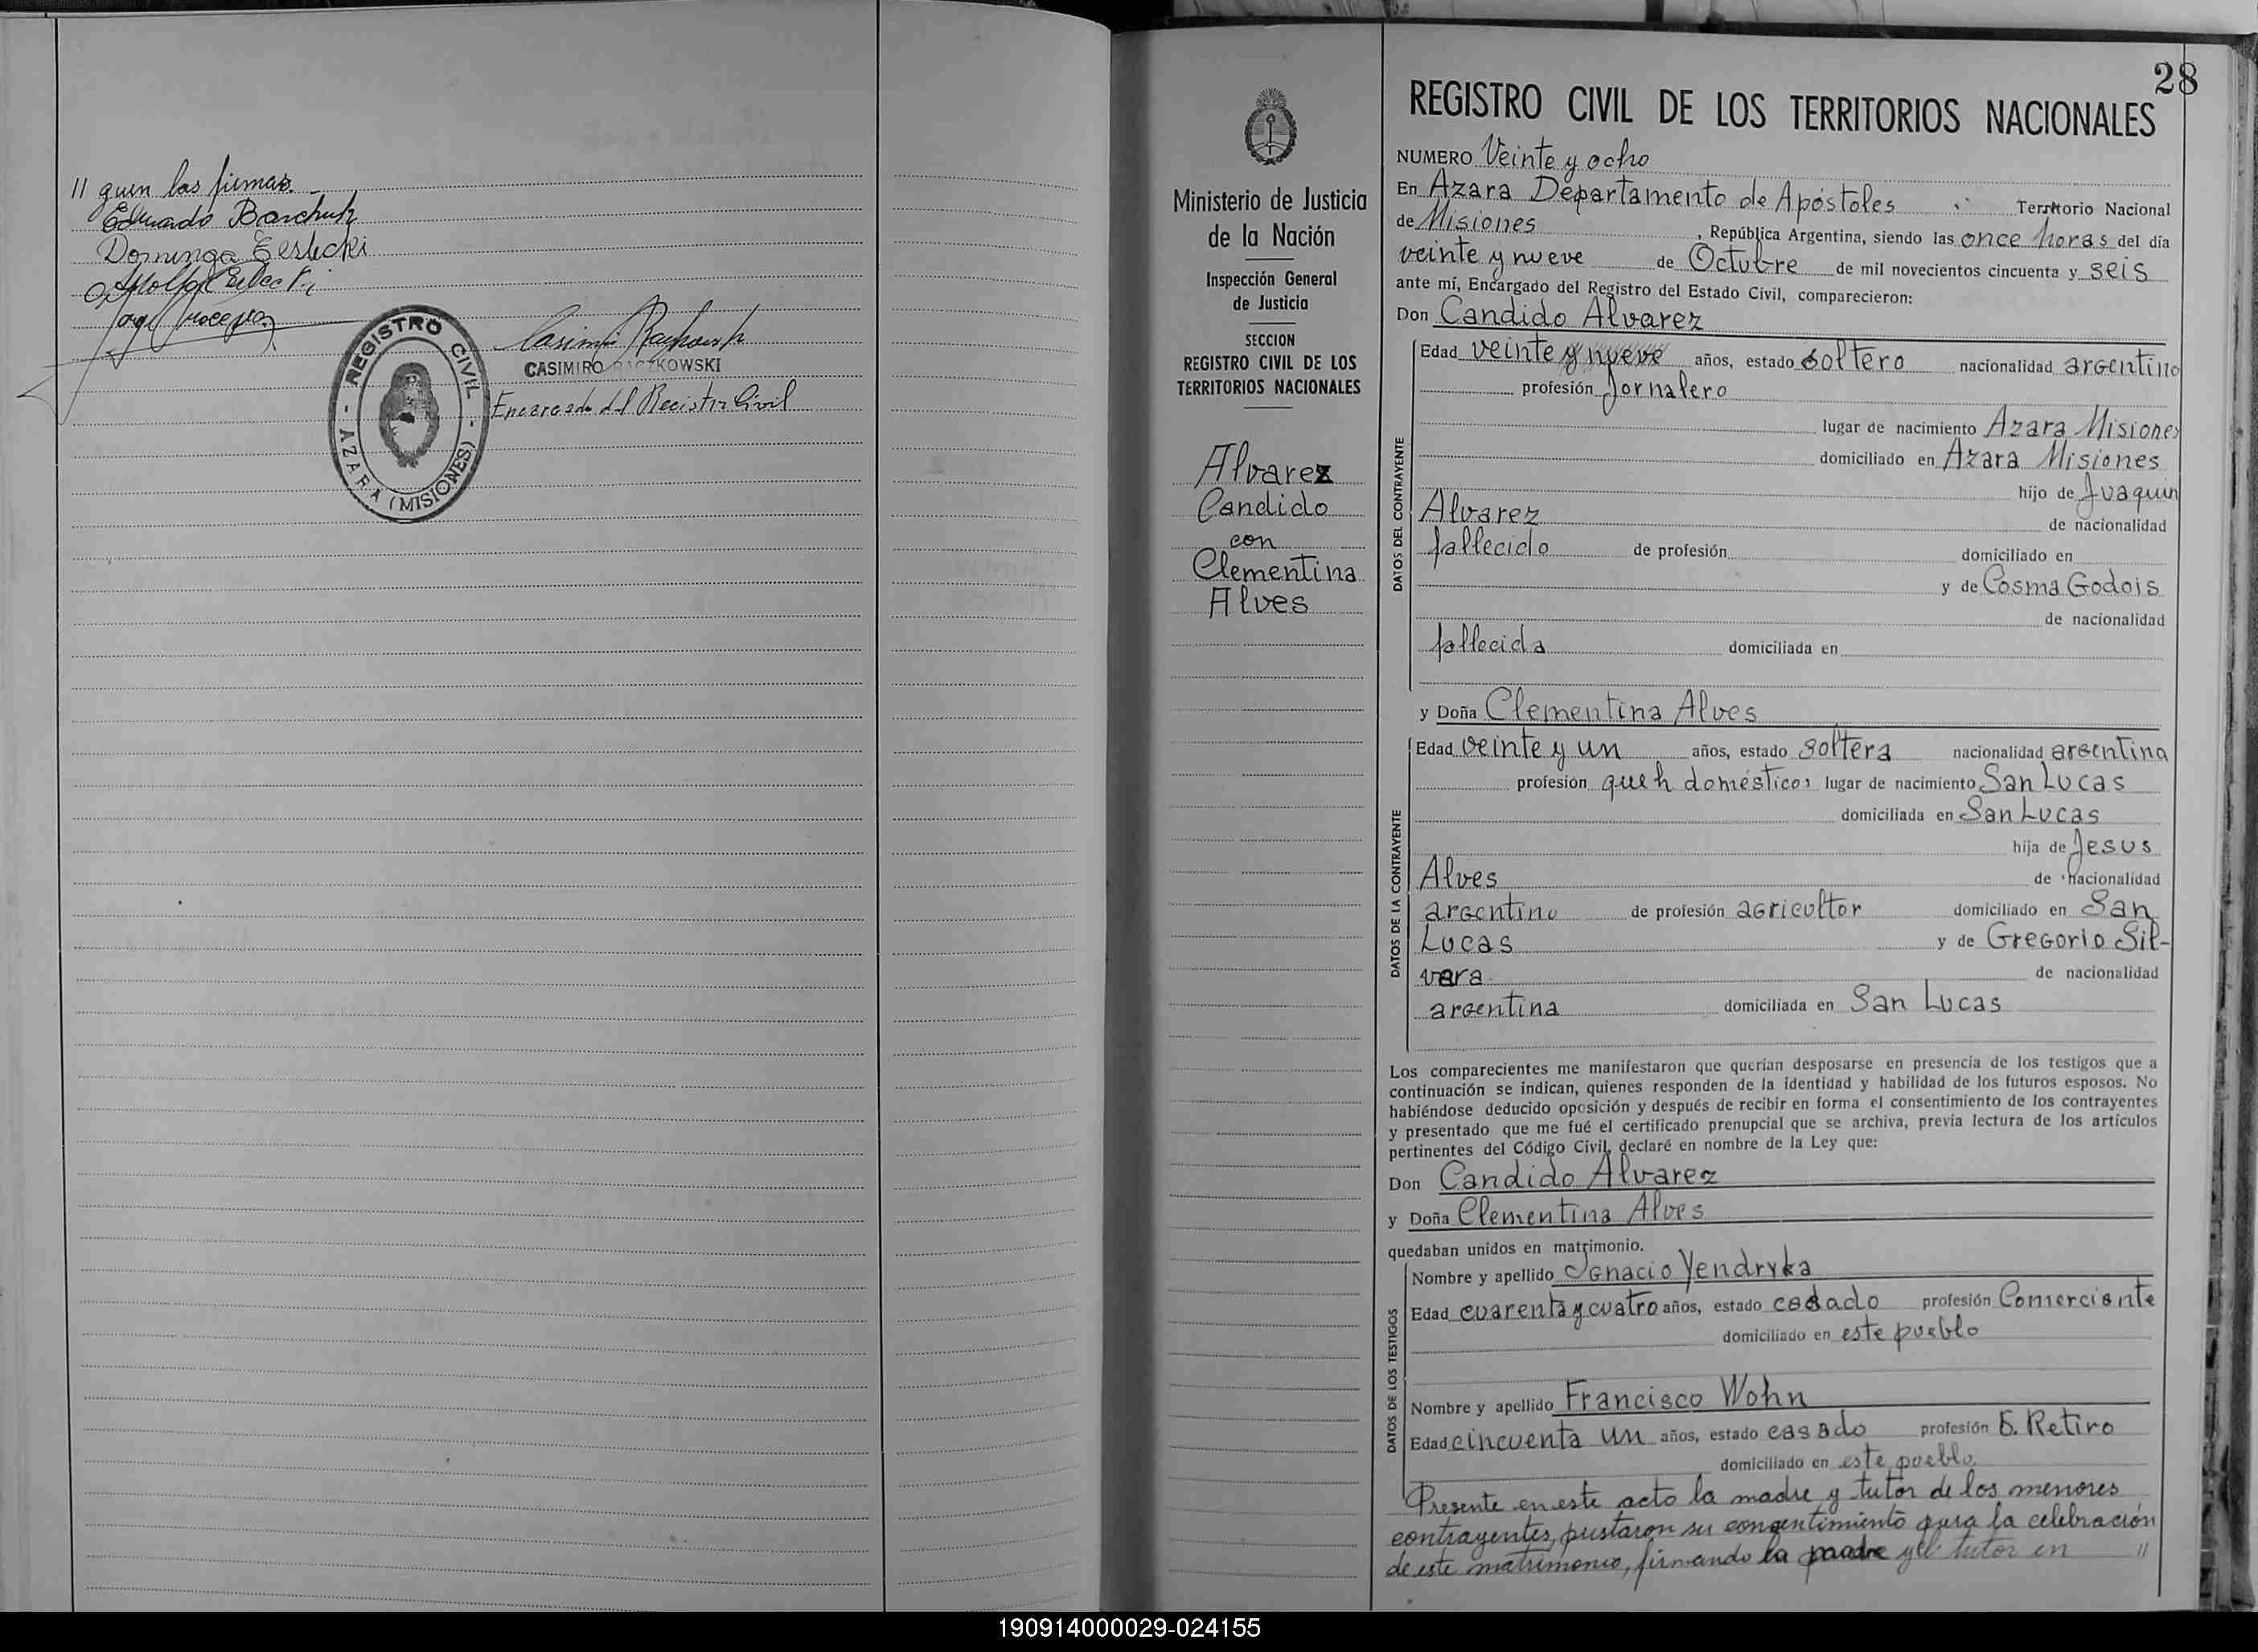 // quien las firmas.
Eduardo Barchuk
Dominga
CASIMIRO RACZKOWSKI
Encargado del Registro Civil
REGISTRO CIVIL
AZARA (MISIONES)
28
Ministerio de Justicia
de la Nación
Inspección General
de Justicia
SECCION
REGISTRO CIVIL DE LOS
TERRITORIOS NACIONALES
Alvarez
Candido
con
Clementina
Alves
REGISTRO CIVIL DE LOS TERRITORIOS NACIONALES
NUMERO Veinte y ocho
En Azara Departamento de Apóstoles Territorio Nacional
de Misiones, República Argentina, siendo las once horas del día
veinte y nueve de Octubre de mil novecientos cincuenta y seis
ante mí, Encargado del Registro del Estado Civil, comparecieron:
Don Candido Alvarez
DATOS DEL CONTRAYENTE
Edad veinte y nueve años, estado soltero nacionalidad argentino
profesión Jornalero
lugar de nacimiento Azara Misiones
domiciliado en Azara Misiones
hijo de Juaquin
Alvarez de nacionalidad
fallecido de profesión domiciliado en
y de Cosma Godois
de nacionalidad
fallecida domiciliada en
y Doña Clementina Alves
DATOS DE LA CONTRAYENTE
Edad veinte y un años, estado soltera nacionalidad argentina
profesión queh domésticos lugar de nacimiento San Lucas
domiciliada en San Lucas
hija de Jesus
Alves de nacionalidad
argentino de profesión agricultor domiciliado en San
Lucas y de Gregorio Sil-
vera de nacionalidad
argentina domiciliada en San Lucas
Los comparecientes me manifestaron que querían desposarse en presencia de los testigos que a
continuación se indican, quienes responden de la identidad y habilidad de los futuros esposos. No
habiéndose deducido oposición y después de recibir en forma el consentimiento de los contrayentes
y presentado que me fué el certificado prenupcial que se archiva, previa lectura de los artículos
pertinentes del Código Civil, declaré en nombre de la Ley que:
Don Candido Alvarez
y Doña Clementina Alves
quedaban unidos en matrimonio.
DATOS DE LOS TESTIGOS
Nombre y apellido Ignacio Yendryka
Edad cuarenta y cuatro años, estado casado profesión Comerciante
domiciliado en este pueblo
Nombre y apellido Francisco Wohn
Edad cincuenta un años, estado casado profesión E. Retiro
domiciliado en este pueblo.
Presente en este acto la madre y tutor de los menores
contrayentes, pustaron su consentimiento para la celebración
de este matrimonio, firmando la padre y el tutor en //
190914000029-024155